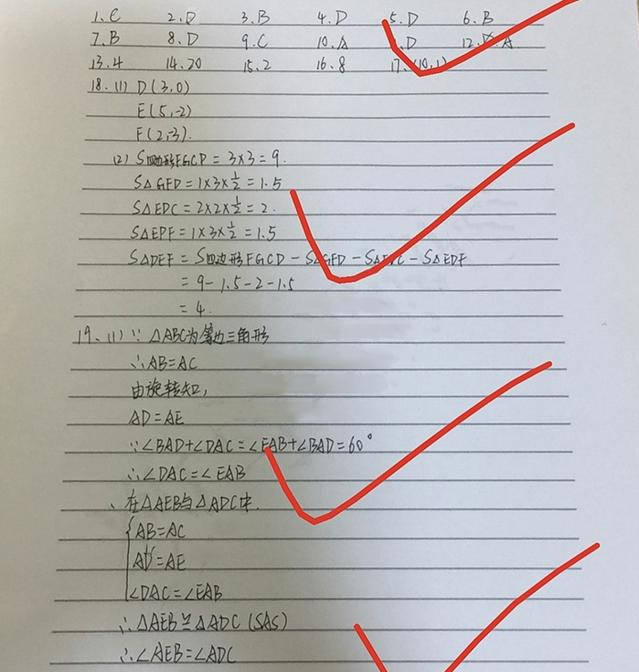 1. C 2. D 3. B 4. D 5. D 6. B
7. B 8. D 9. C 10. A D 12. A
13. 4 14. 20 15. 2 16. 8 17. (10,1)
18. (1) D(3,0)
E(5,-2)
F(2,-3).
(2) S四边形FGCP = 3×3 = 9.
S△GFD = 1×3×½ = 1.5
S△EDC = 2×2×½ = 2.
S△EPF = 1×3×½ = 1.5
S△DEF = S四边形FGCD - S△GFD - S△EDC - S△EDF
= 9 - 1.5 - 2 - 1.5
= 4.
19. (1) ∵ △ABC为等边三角形
∴AB=AC
由旋转知,
AD=AE
∵∠BAD+∠DAC=∠EAB+∠BAD=60°
∴∠DAC=∠EAB
、在△AEB与△ADC中.
AB=AC
AD=AE
∠DAC=∠EAB
∴△AEB≌△ADC (SAS)
∴∠AEB=∠ADC